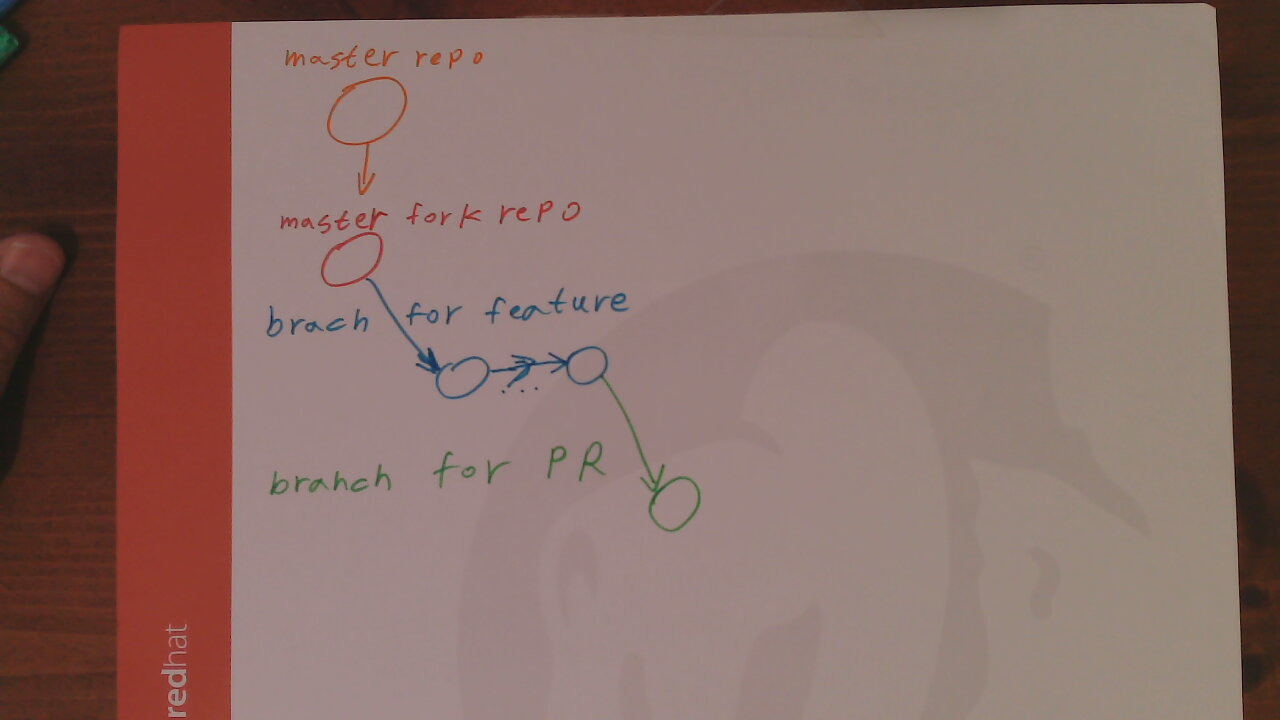 master repo
master fork repo
brach for feature
branch for PR
redhat